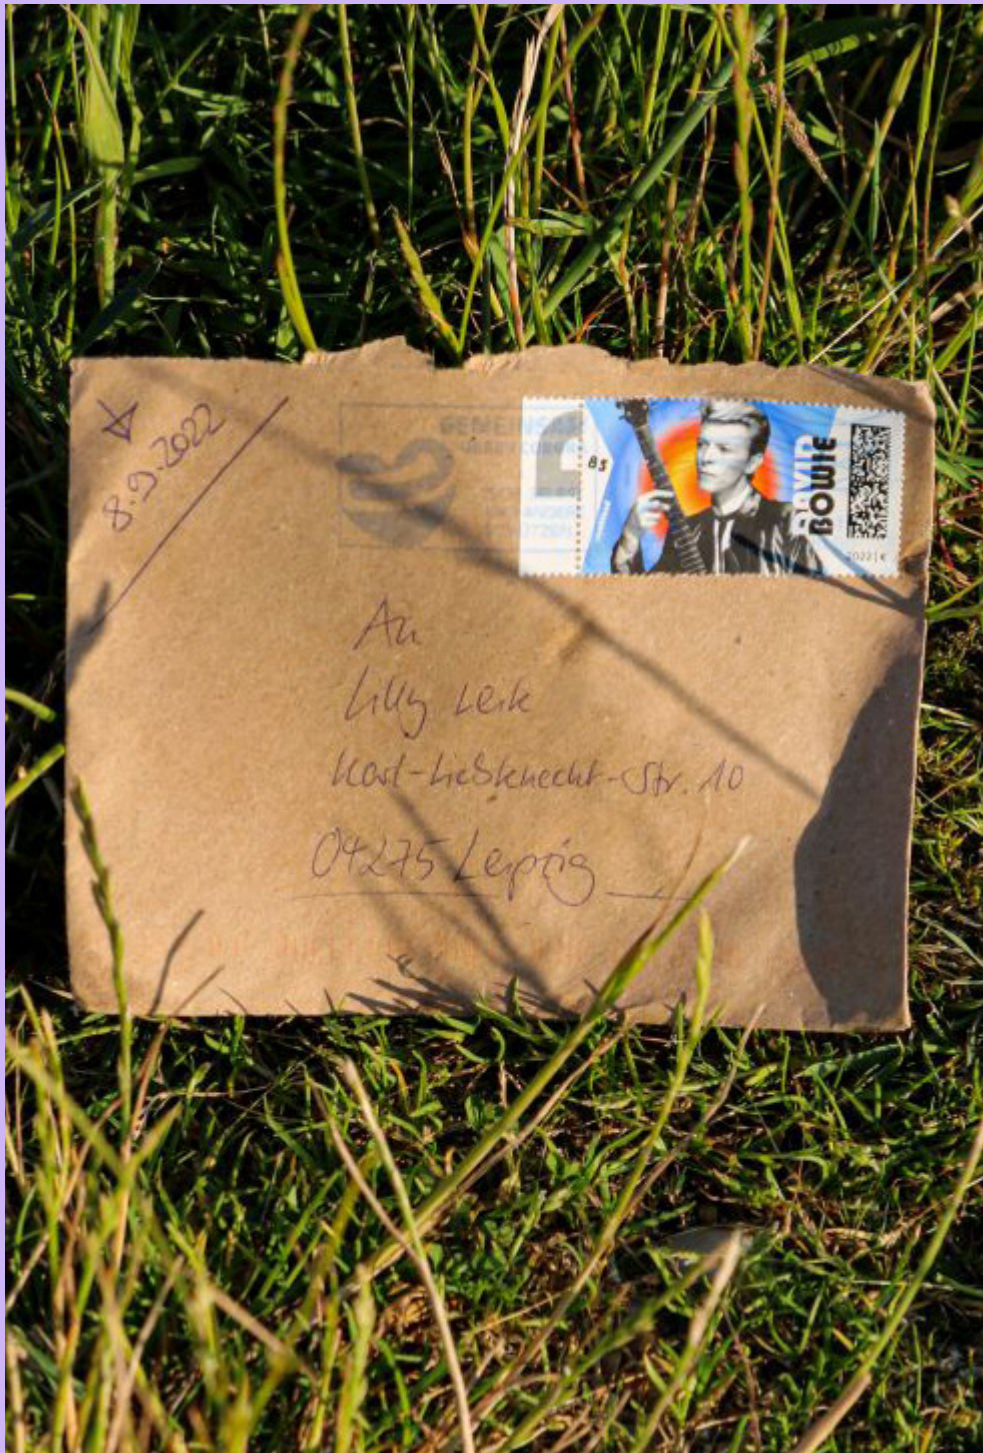 8.9.2022
GEMEINSAM
85
DAVID
BOWIE
2022 | €
An
Lilly Leik
Karl-Liebknecht-Str. 10
04275 Leipzig